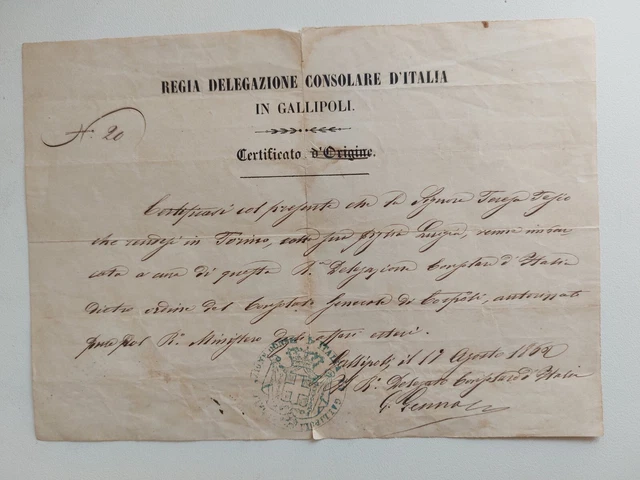 REGIA DELEGAZIONE CONSOLARE D'ITALIA
IN GALLIPOLI.
N.° 20
Certificato d'Origine.
Certificasi col presente che la Signora Teresa
che recasi in Torino, colla sua figlia Luigia, venne imbar
cata a cura di questa R.ª Delegazione Consolare d'Italia
dietro ordine del Consolato Generale di autorizzato
pel R.° Ministero degli affari esteri.
Gallipoli, il 17 Agosto 1862
Il R.° Delegato Consolare d'Italia
GALLIPOLI